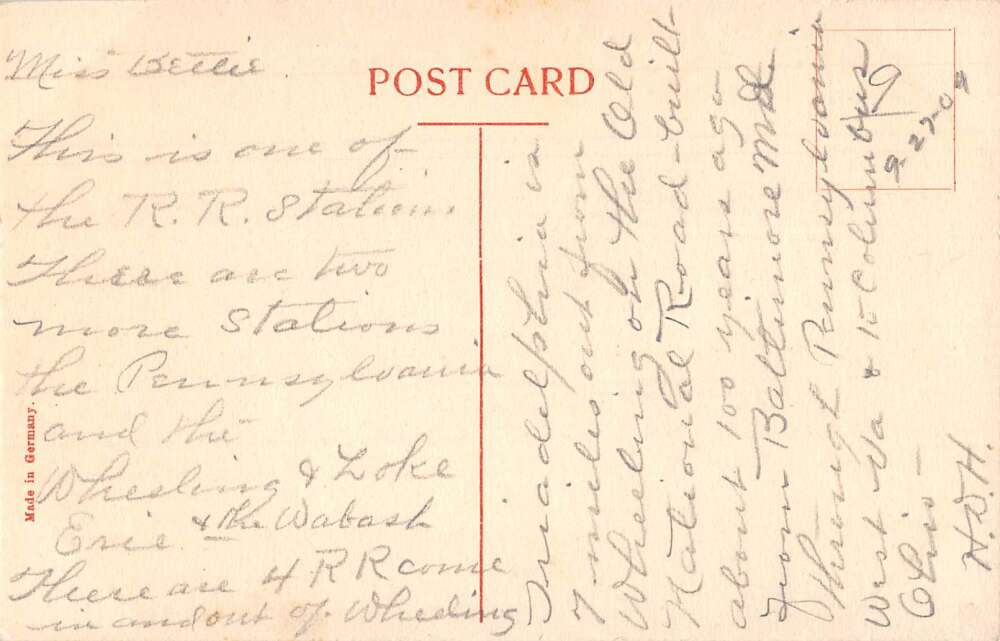 POST CARD
Made in Germany.
Miss Bettie
This is one of
the R. R. Station.
There are two
more Stations
the Pennsylvania
and the
Wheeling & Loke
Erie. & the Wabash
There are 4 R R come
in and out of Wheeling
Triadelphia is
7 miles out from
Wheeling on the Old
National Road - built
about 100 years ago
from Baltimore Md.
through Pennsylvania
West Va & to Columbus
Ohio -
H. W. H.
9